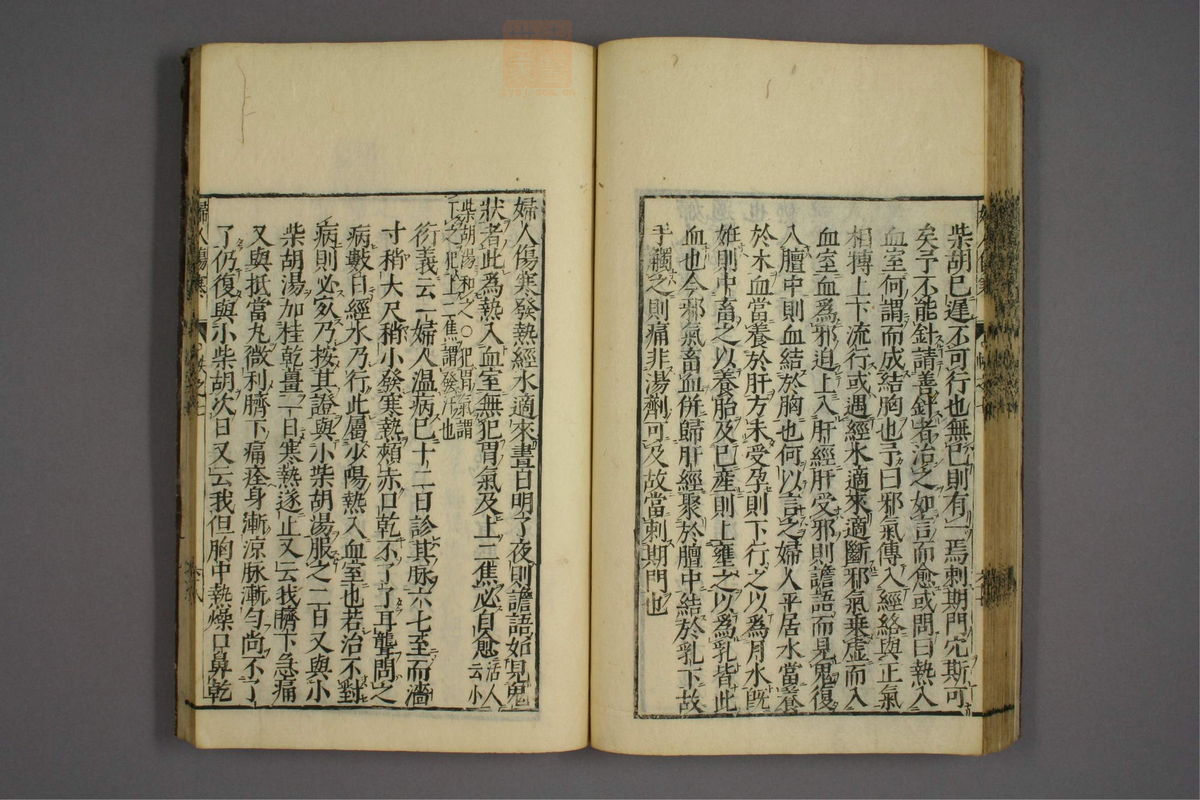 柴胡已遲不可行也無已則有一焉刺期門穴斯可
矣予不能針請善針者治之如言而愈或問曰熱入
血室何謂而成結胸也予曰邪氣傳入經絡與正氣
相搏上下流行或遇經水適來適斷邪氣乗虛而入
血室血為邪迫上入肝經肝受邪則譫語而見鬼復
入膻中則血結於胸也何以言之婦人平居水當養
於木血當養於肝方未受孕則下行之以為月水既
妊則中畜之以養胎及已產則上壅之以為乳皆此
血也今邪氣畜血併歸肝經聚於膻中結於乳下故
手觸之則痛非湯劑可及故當刺期門也
婦人傷寒發熱經水適來晝日明了夜則譫語如見鬼
狀者此為熱入血室無犯胃氣及上二焦必自愈活人云小
柴胡湯和之〇犯胃氣謂
下之犯上二焦謂發汗也
衍義云一婦人温病已十二日診其脉六七至而濇
寸稍大尺稍小發寒熱頰赤口乾不了了耳聾問之
病數日經水乃行此屬少陽熱入血室也若治不對
病則必死乃按其證與小柴胡湯服之二日又與小
柴胡湯加桂乾薑一日寒熱遂止又云我臍下急痛
又與抵當丸微利臍下痛痊身漸涼脉漸勻尚不了
了仍復與小柴胡次日又云我但胸中熱燥口鼻乾
婦人傷寒